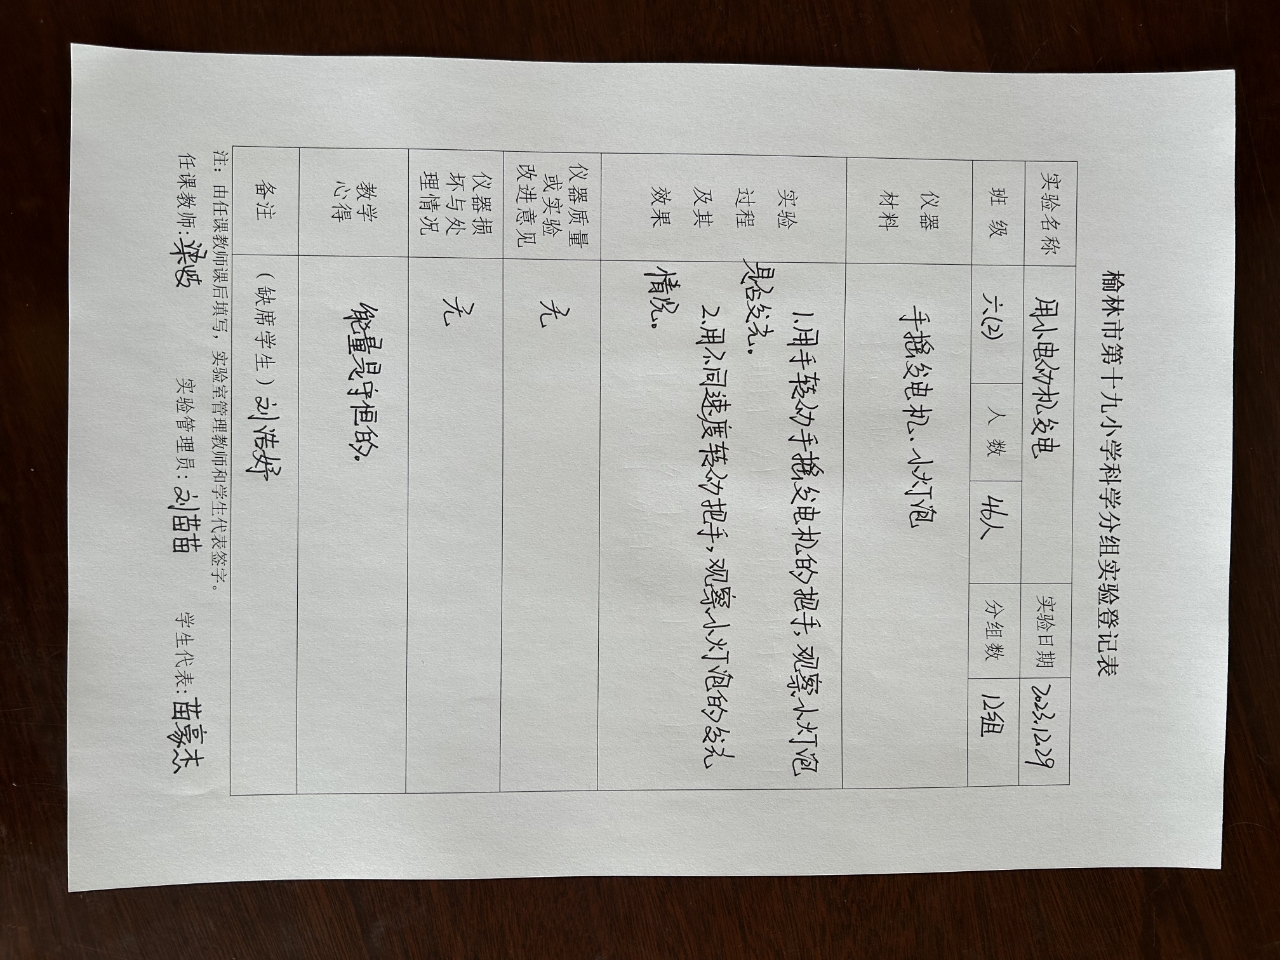 榆林市第十九小学科学分组实验登记表
实验名称 用小电动机发电 实验日期 2023.12.29
班级 六(2) 人数 46人 分组数 12组
仪器
材料
手摇发电机、小灯泡
实验
过程
及其
效果
1.用手转动手摇发电机的把手,观察小灯泡
是否发光。
2.用不同速度转动把手,观察小灯泡的发光
情况。
仪器质量
或实验
改进意见
无
仪器损
坏与处
理情况
无
教学
心得
能量是守恒的。
备注 (缺席学生)刘浩妤
注:由任课教师课后填写,实验室管理教师和学生代表签字。
任课教师:梁 实验管理员:刘苗苗 学生代表:苗豪杰